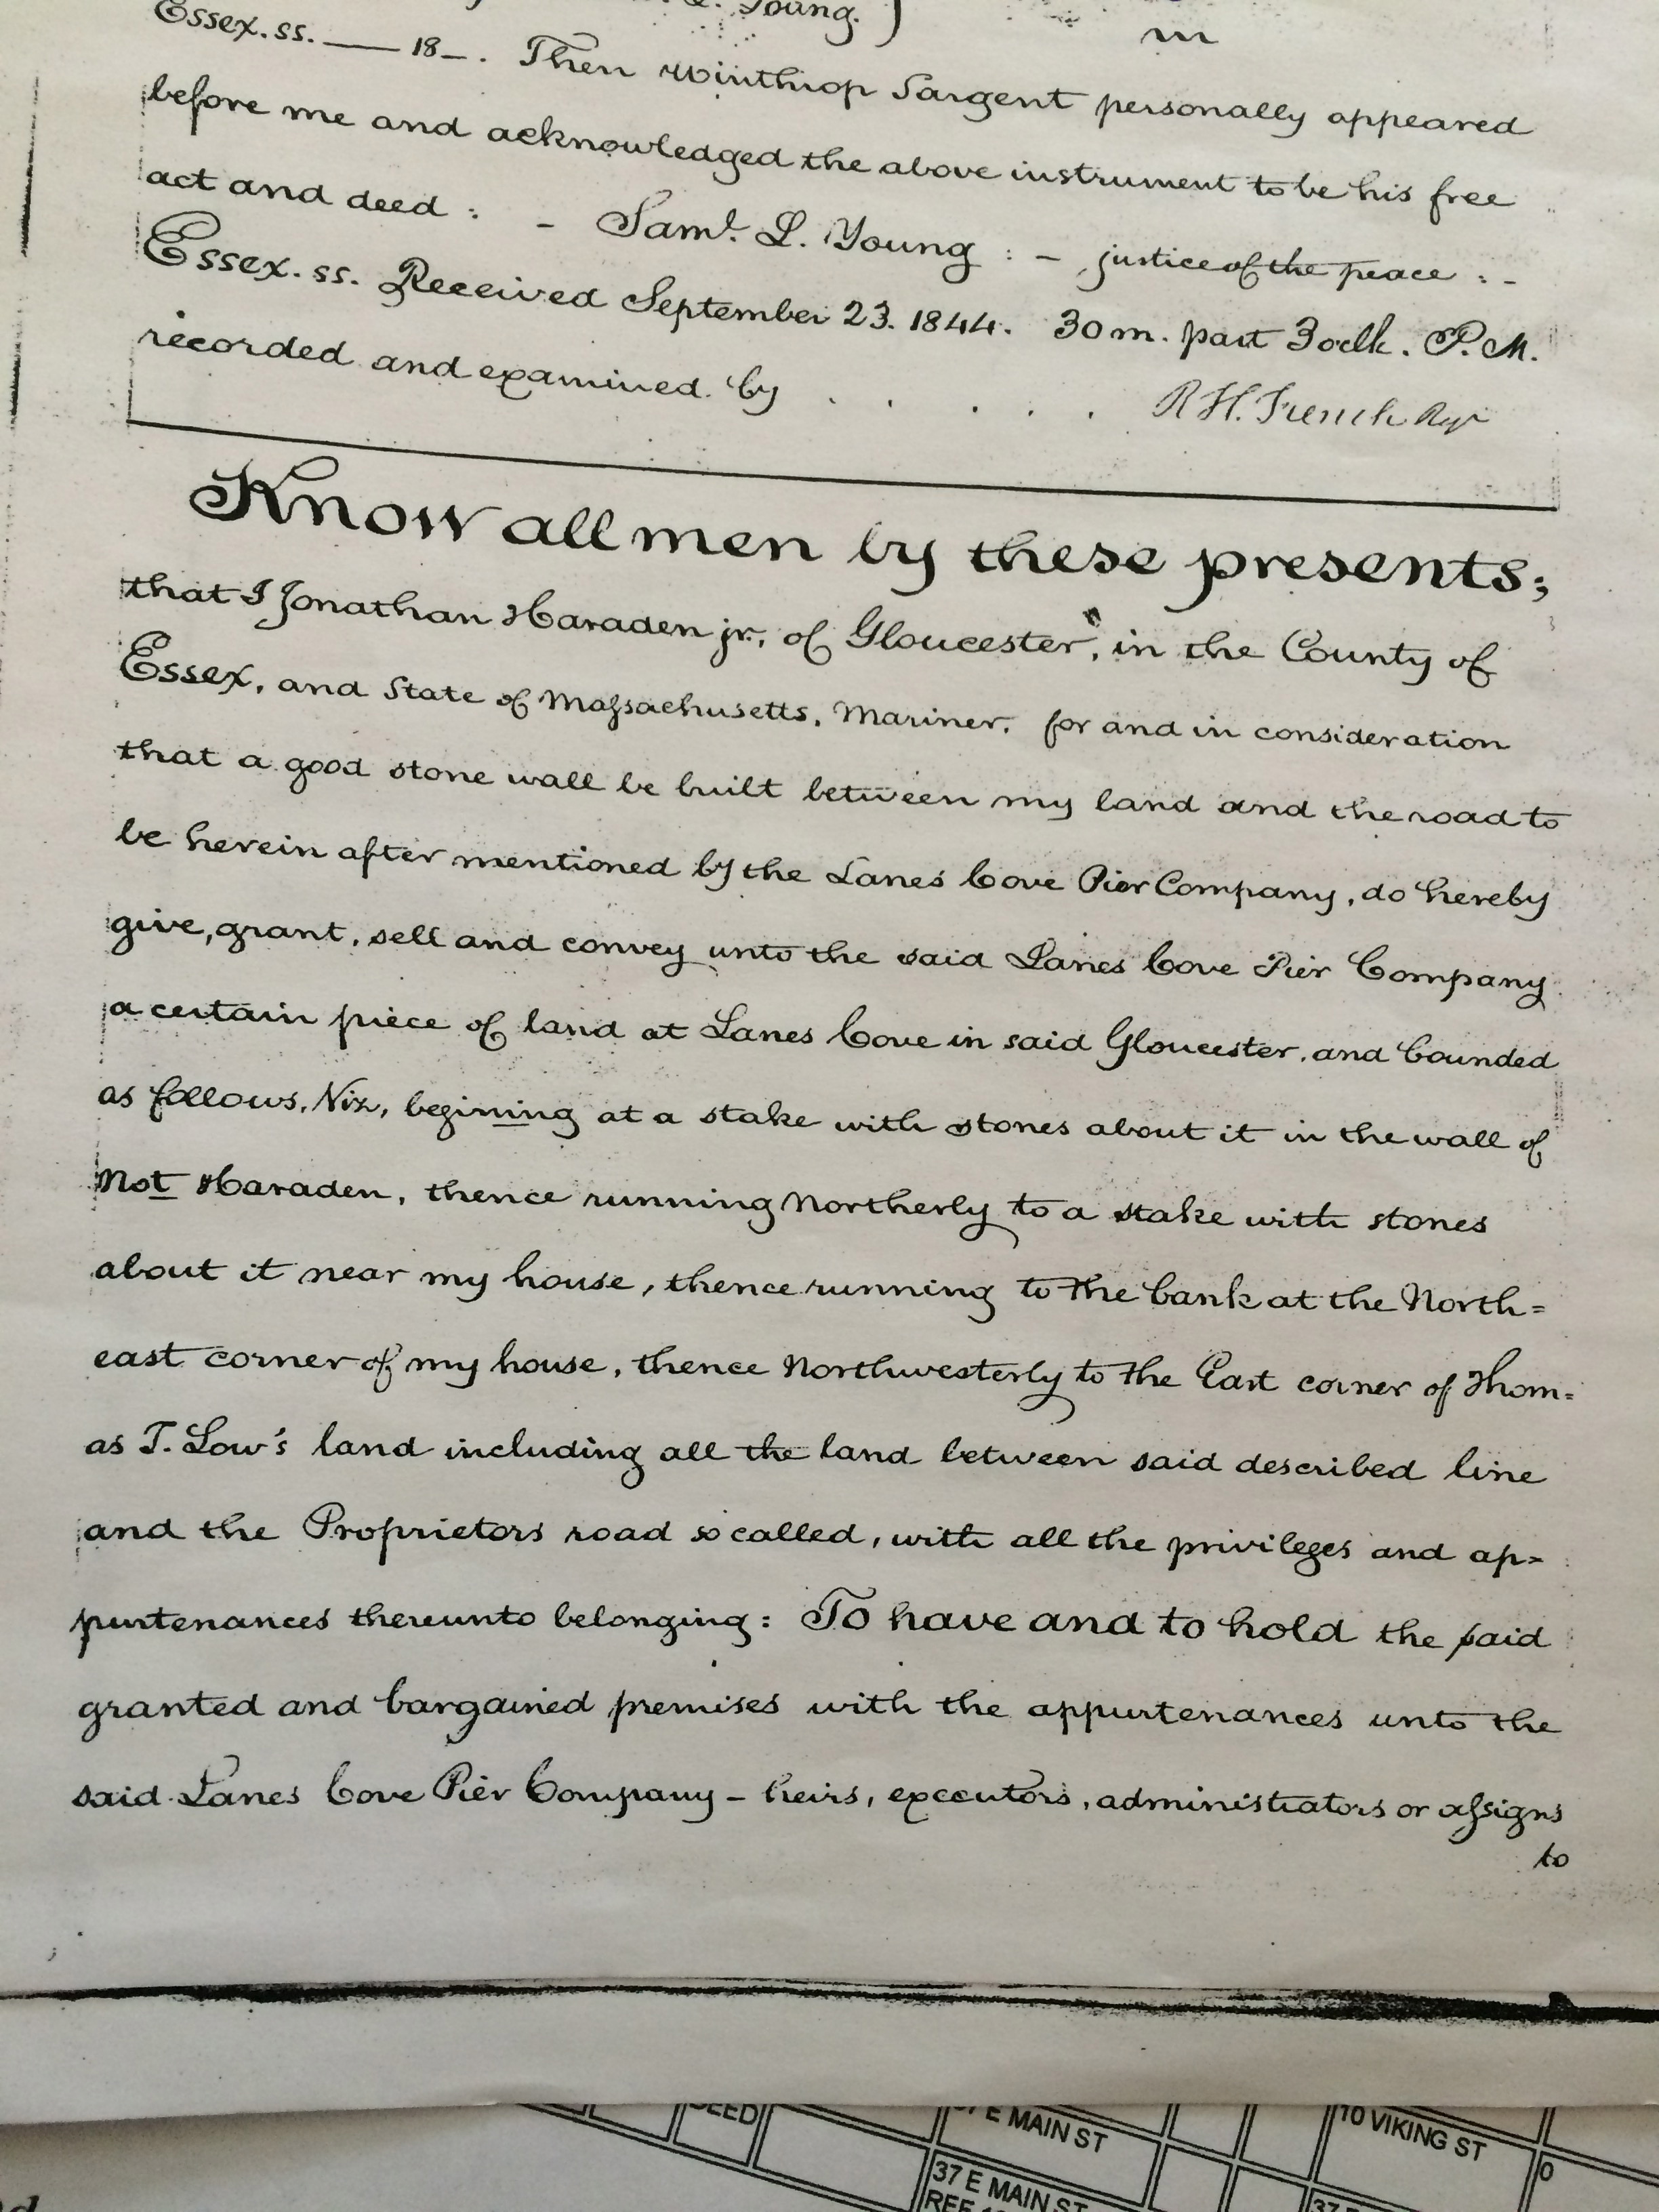 Young.)
Essex. ss. —— 18—. Then Winthrop Sargent personally appeared
before me and acknowledged the above instrument to be his free
act and deed : - Saml. L. Young : - justice of the peace : -
Essex. ss. Received September 23. 1844. 30 m. past 3 oclk. P. M.
recorded and examined by . . . . . R H. French Regr
Know all men by these presents;
that I Jonathan Haraden jr, of Gloucester, in the County of
Essex, and State of Massachusetts, Mariner, for and in consideration
that a good stone wall be built between my land and the road to
be herein after mentioned by the Lanes Cove Pier Company, do hereby
give, grant, sell and convey unto the said Lanes Cove Pier Company
a certain piece of land at Lanes Cove in said Gloucester, and bounded
as follows, Viz, begining at a stake with stones about it in the wall of
Not Haraden, thence running Northerly to a stake with stones
about it near my house, thence running to the bank at the North=
east corner of my house, thence Northwesterly to the East corner of Thom=
as T. Low's land including all the land between said described line
and the Proprietors road so called, with all the privileges and ap=
purtenances thereunto belonging: To have and to hold the said
granted and bargained premises with the appurtenances unto the
said Lanes Cove Pier Company - heirs, executors, administrators or assigns
to
E MAIN ST
10 VIKING ST
37 E MAIN ST
0